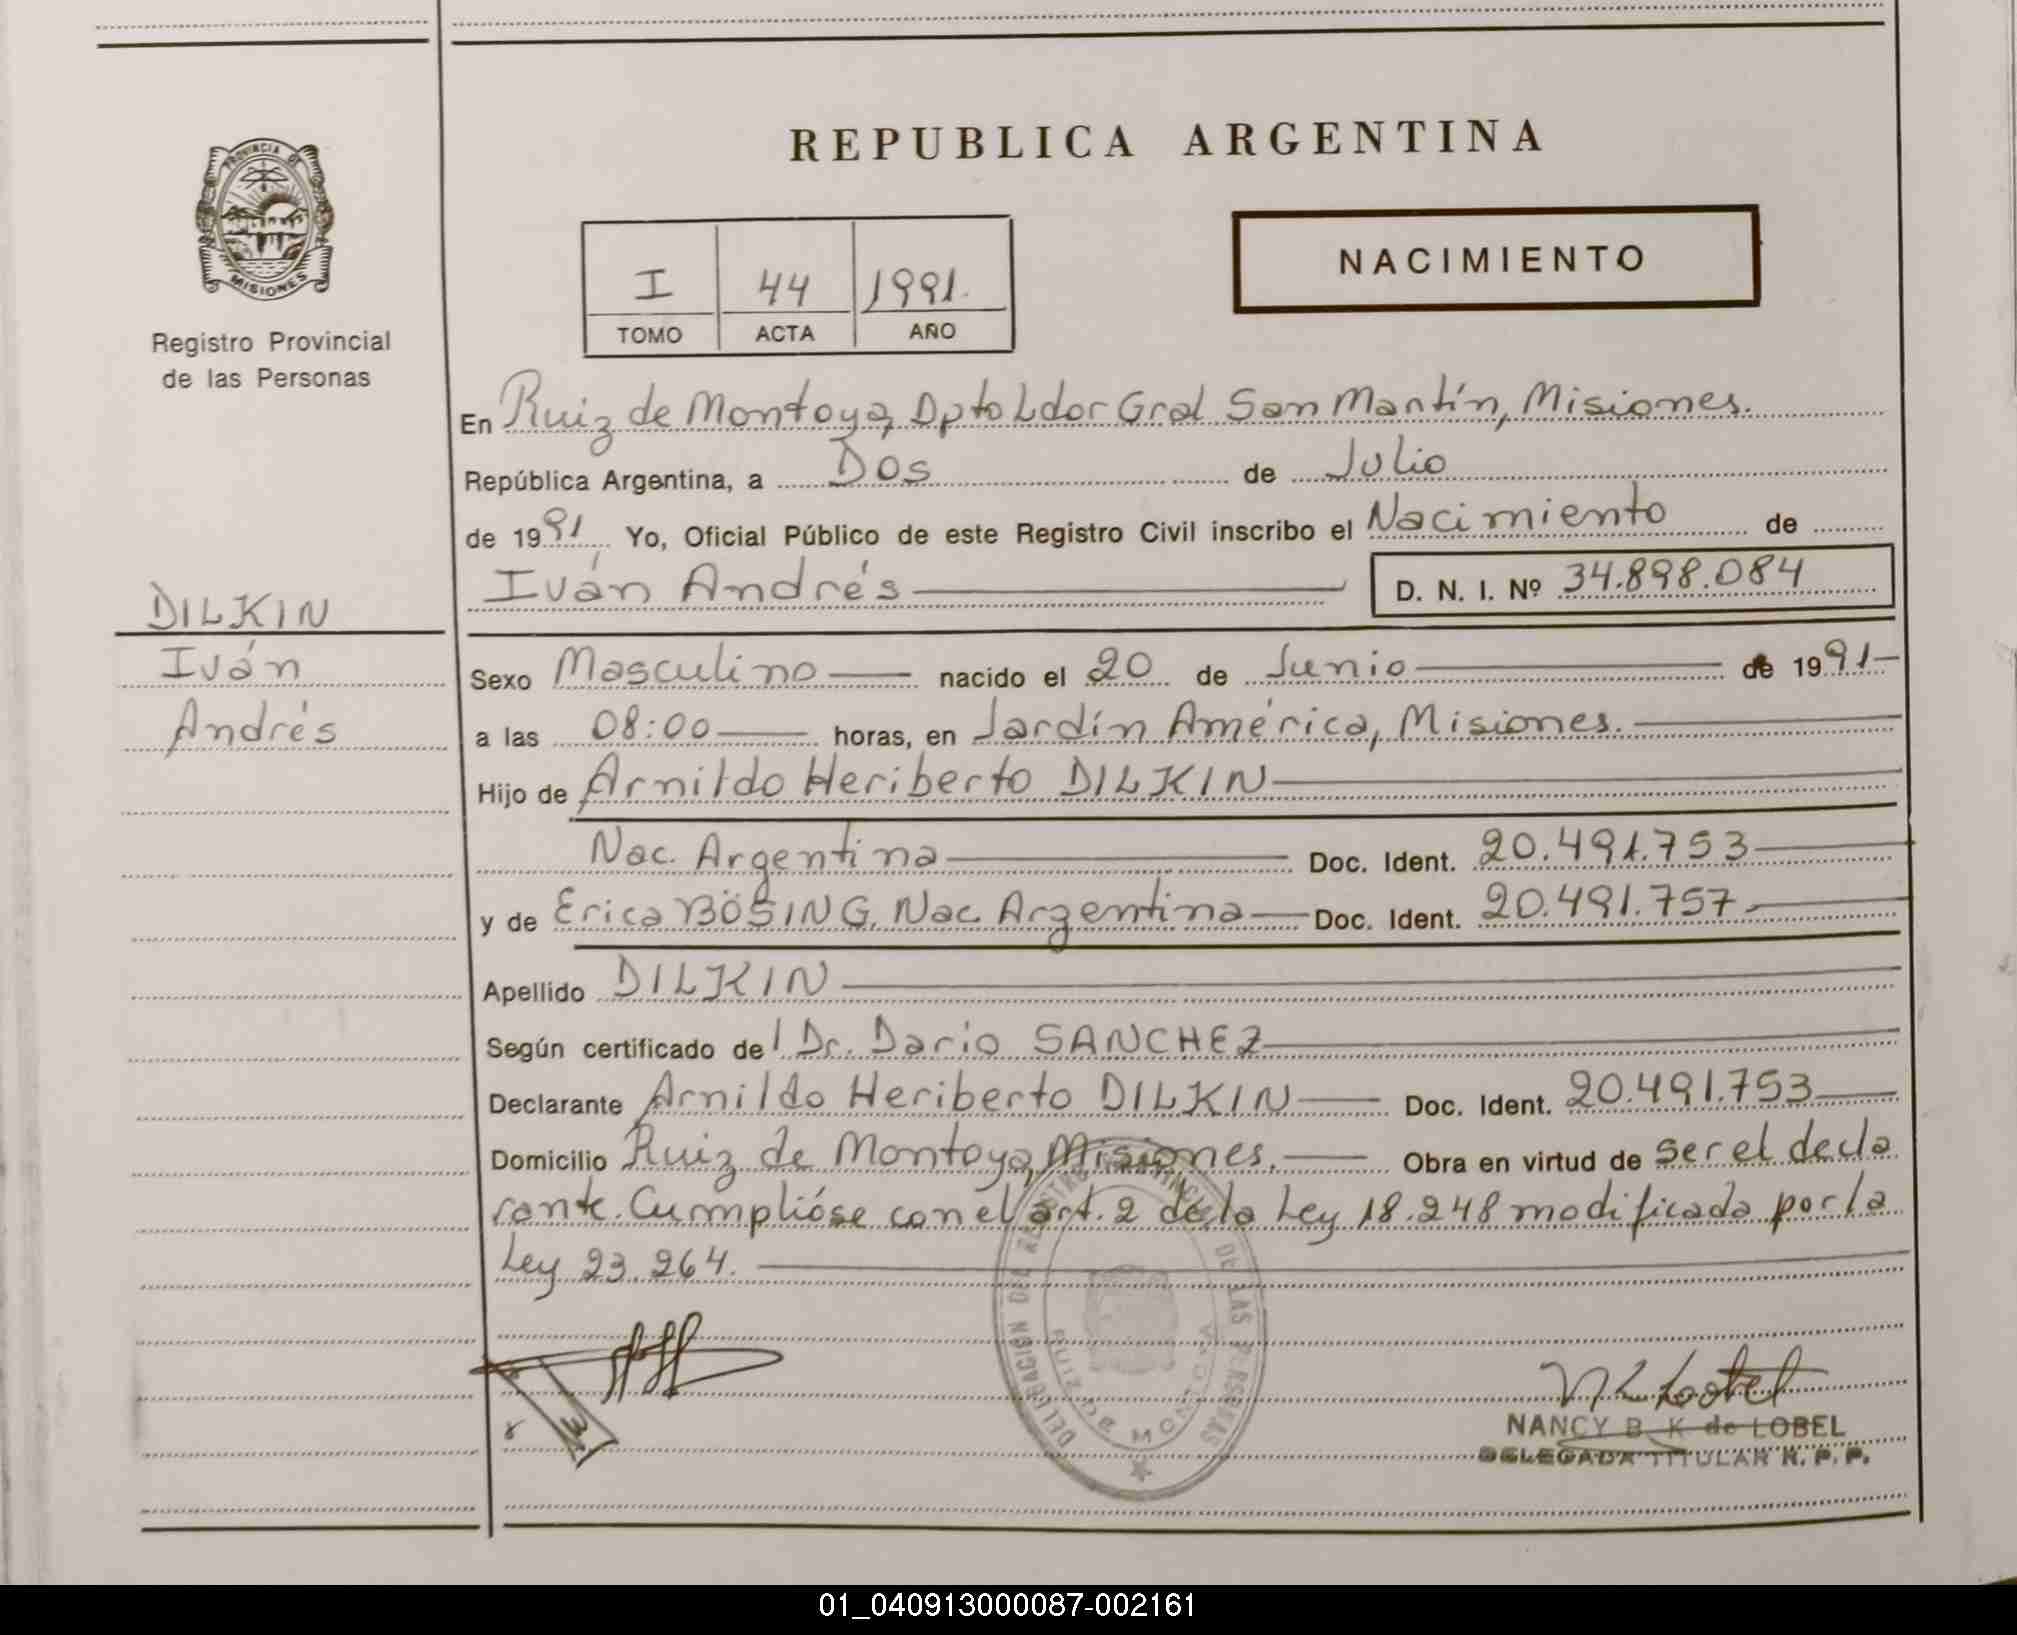 REPUBLICA ARGENTINA
PROVINCIA DE
MISIONES
Registro Provincial
de las Personas
I 44 1991.
TOMO ACTA AÑO
NACIMIENTO
En Ruiz de Montoya, Dpto Ldor Gral San Martín, Misiones.
República Argentina, a Dos de Julio
de 1991 Yo, Oficial Público de este Registro Civil inscribo el Nacimiento de
Iván Andrés D. N. I. Nº 34.898.084
DILKIN
Iván
Andrés
Sexo Masculino nacido el 20 de Junio de 1991
a las 08:00 horas, en Jardín América, Misiones.
Hijo de Arnildo Heriberto DILKIN
Nac. Argentina Doc. Ident. 20.491.753
y de Erica BÖSING, Nac. Argentina Doc. Ident. 20.491.757
Apellido DILKIN
Según certificado del Dr. Dario SANCHEZ
Declarante Arnildo Heriberto DILKIN Doc. Ident. 20.491.753
Domicilio Ruiz de Montoya, Misiones. Obra en virtud de ser el decla
rante. Cumplióse con el art. 2 de la Ley 18.248 modificada por la
Ley 23.264.
DELEGACIÓN DEL REGISTRO PROVINCIAL DE LAS PERSONAS
RUIZ DE MONTOYA
NANCY B. K. de LOBEL
DELEGADA TITULAR R. P. P.
01_040913000087-002161